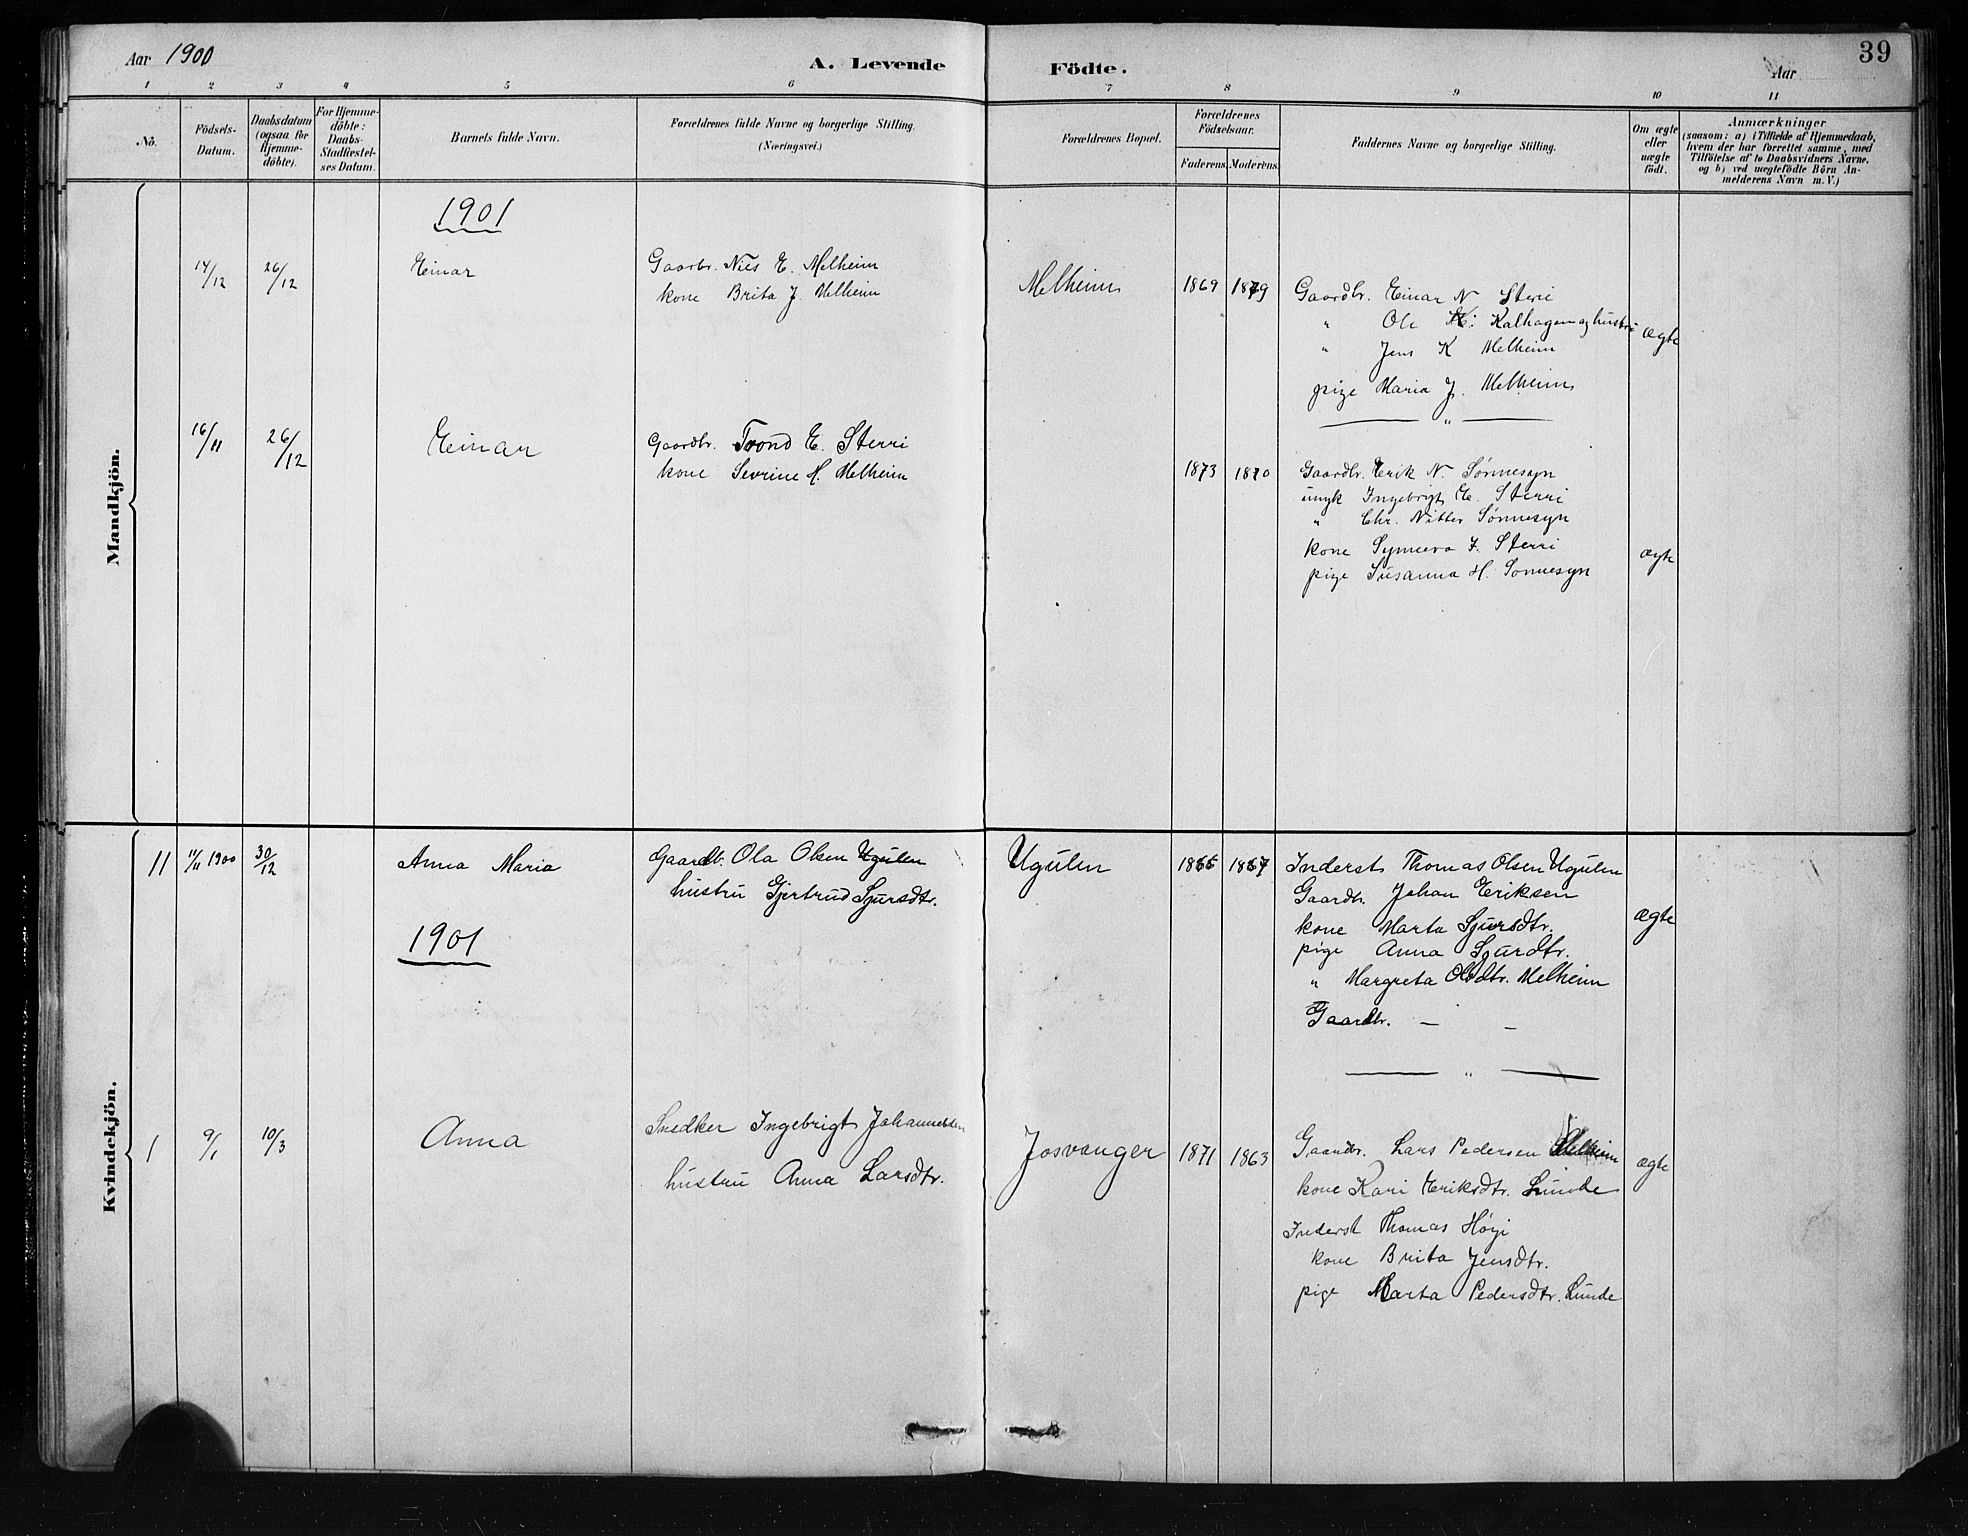 Aar 1900
A. Levende Födte.
Aar
39
1 2 3 4 5 6 7 8 9 10 11
No.
Födsels-Datum.
Daabsdatum (ogsaa for Hjemme-döbte).
For Hjemme-döbte: Daabs-Stadfæstel-ses Datum.
Barnets fulde Navn.
Forældrenes fulde Navne og borgerlige Stilling.
(Næringsvei.)
Forældrenes Bopæl.
Forældrenes Födselsaar.
Faderens. Moderens.
Faddernes Navne og borgerlige Stilling.
Om ægte eller uægte födt.
Anmærkninger
(saasom: a) i Tilfælde af Hjemmedaab,
hvem der har forrettet samme, med
Tilföielse af to Daabsvidners Navne.
og b) ved uægtefödte Börn An-
melderens Navn m. V.)
Mandkjön.
1901
14/12 26/12 Einar Gaarbr. Nils E. Melheim Melheim 1869 1879 Gaardbr. Einar N Sterri
kone Brita J. Melheim
" Ole Kalhagen og hustru ægte
" Jens K Melheim
pige Maria J. Melheim
— " —
16/11 26/12 Einar Gaardbr. Trond E. Sterri 1873 1870 Gaardbr. Erik N. Sønnesyn
kone Sevrine H. Melheim
ungk Ingebrigt E. Sterri
" Chr. Nitter Sønnesyn
kone Synneva I. Sterri ægte
pige Susanna H. Sønnesyn
Kvindekjön.
11 11/11 1900 30/12 Anna Maria Gaardb. Ola Olsen Ugulen Ugulen 1867 Inderst Thomas Olsen Ugulen
hustru Gjertrud Sjursdtr.
Gaardbr. Johan Eriksen
kone Marta Sjursdtr. ægte
pige Anna Sjurdtr.
" Margreta Olsdtr. Melheim
Gaardbr. — —
1901
— " —
1 9/1 10/3 Anna Snedker Ingebrigt Johannesen Josvanger 1871 1863 Gaardbr. Lars Pedersen Melheim ægte
hustru Anna Larsdtr.
kone Kari Eriksdtr. Lunde
Inderst Thomas Høgi
kone Brita Jensdtr.
pige Marta Pedersdtr. Lunde